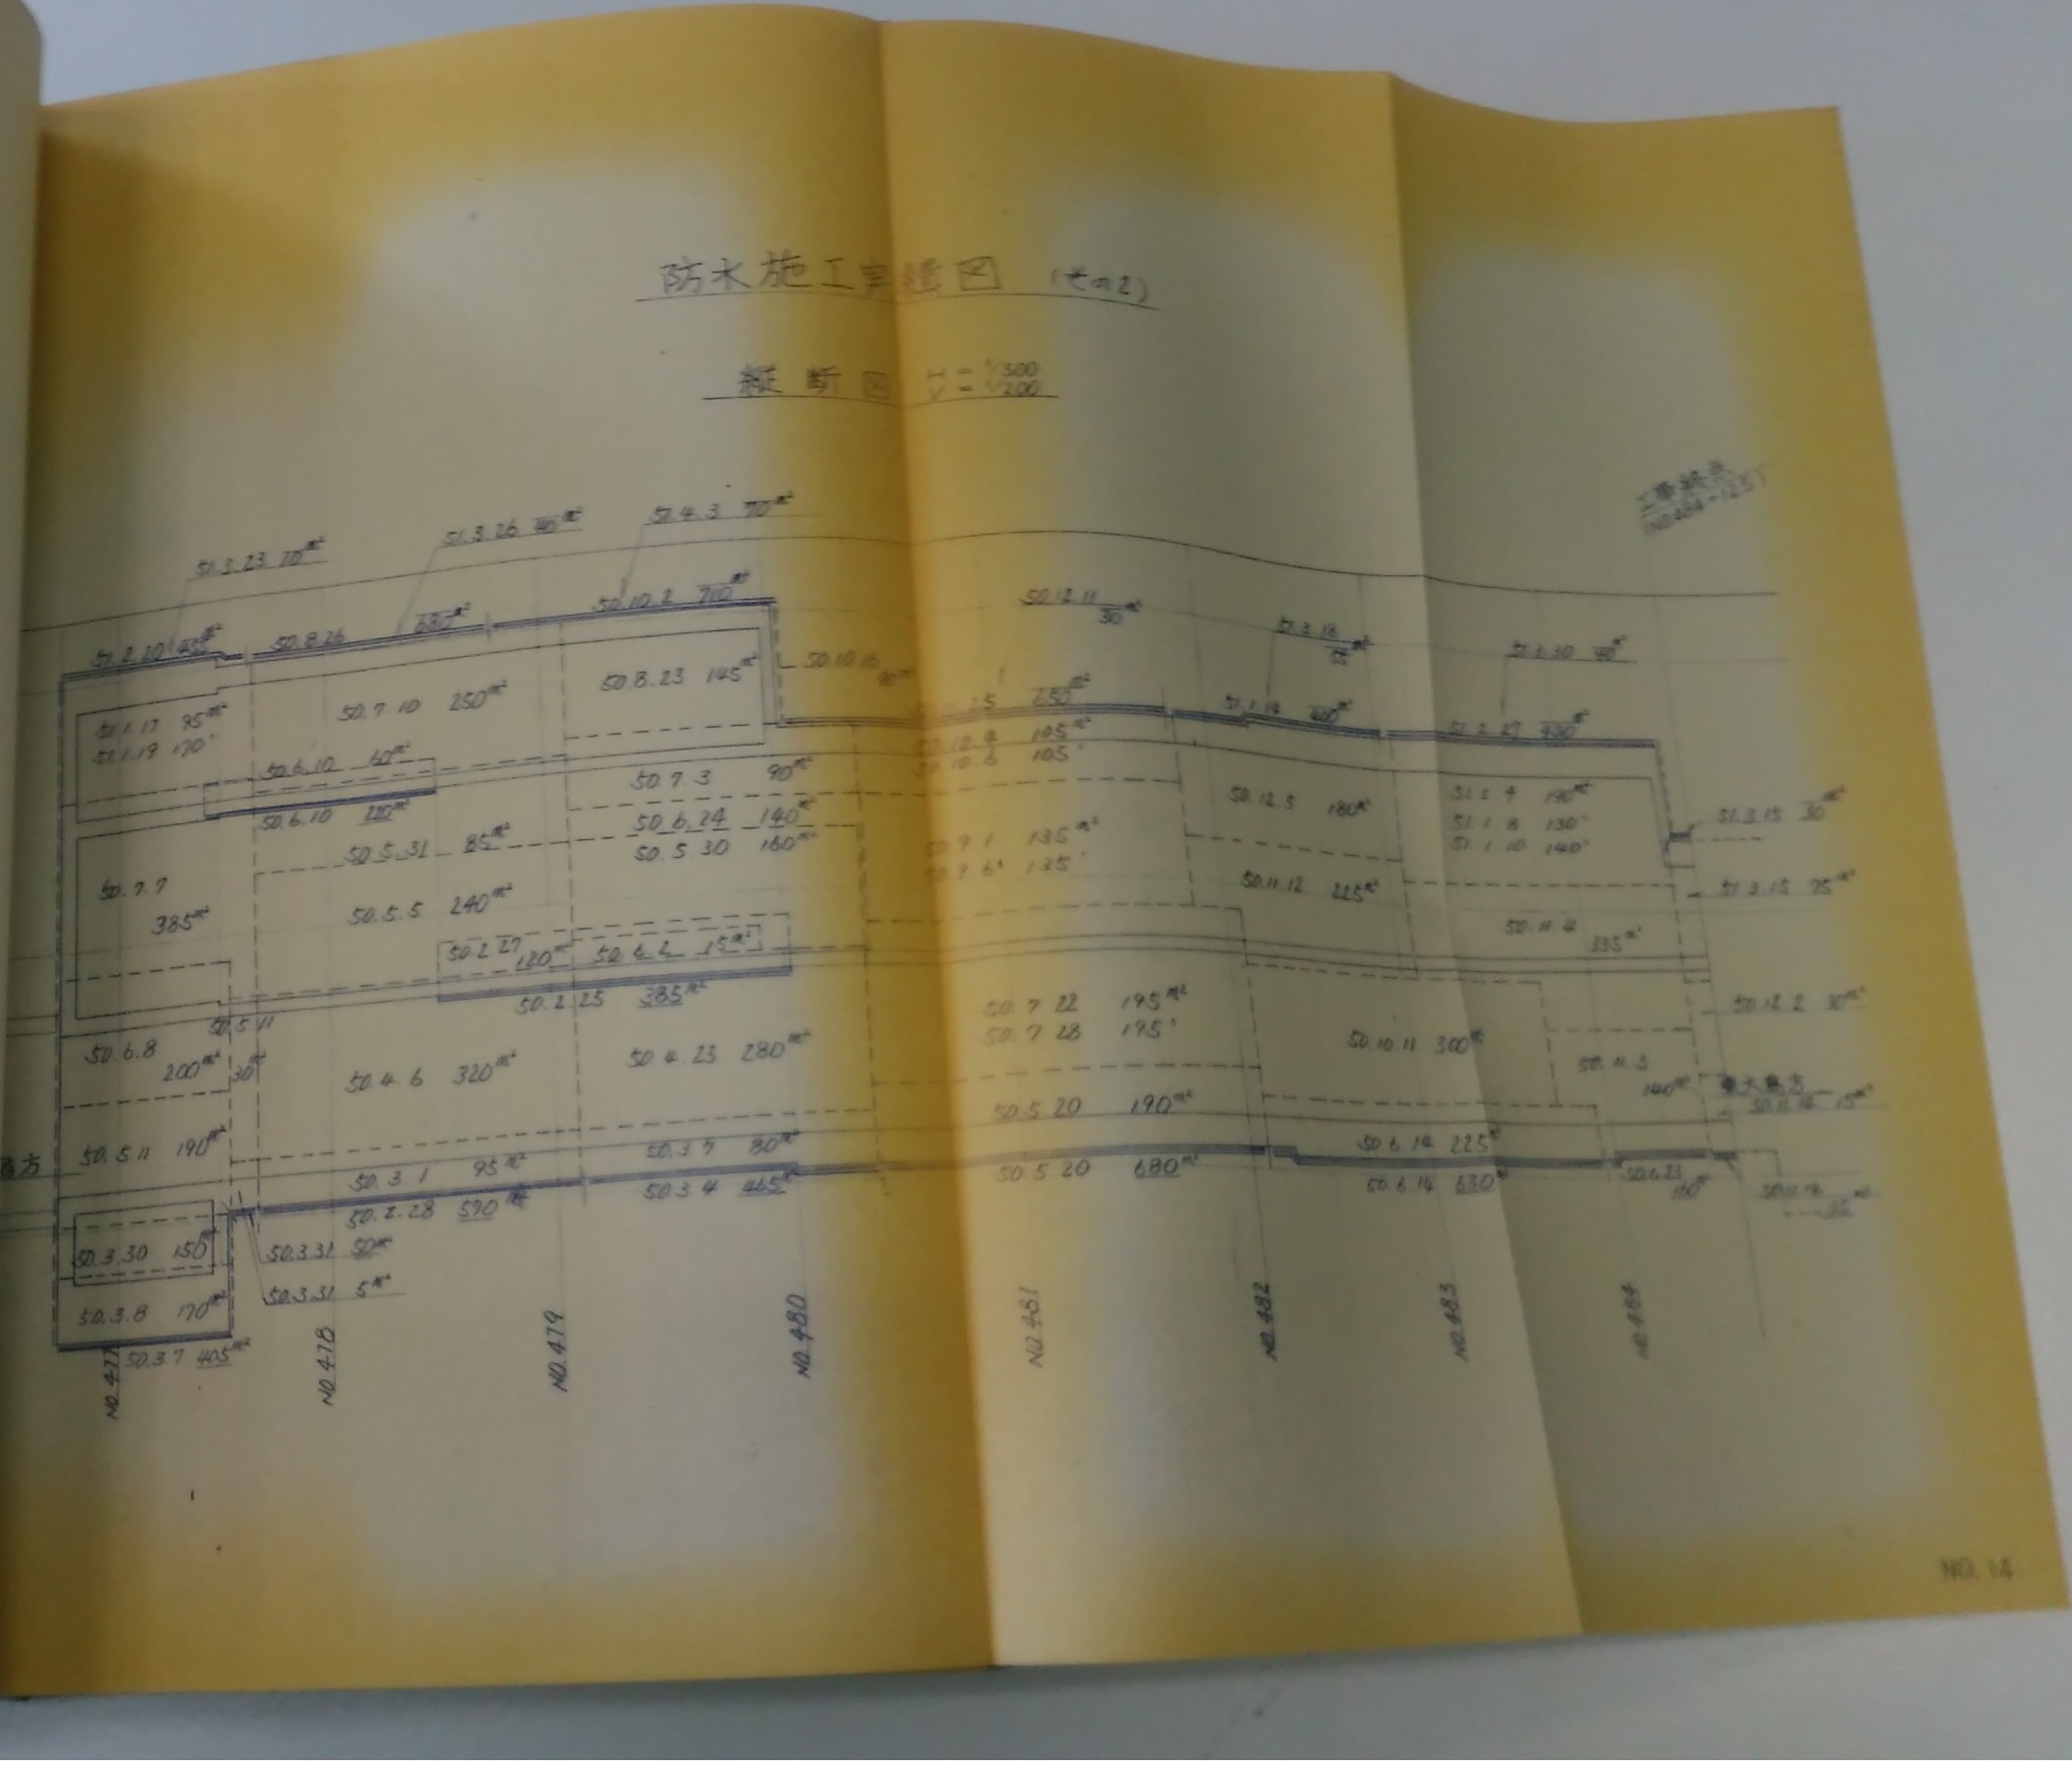 防水施工実績図 (その2)
縦断図 H = 1/500
V = 1/200
工事終点
51.3.23 70m²
51.3.26 40m²
51.4.3 70m²
51.2.20
50.8.26 680m²
50.10.2 710m²
50.12.11 30m²
51.3.18 55m²
51.3.30 40m²
50.10.16
51.1.17 85m²
51.1.19 170〃
50.7.10 250m²
50.8.23 145m²
650m²
51.1.14
51.2.27
50.6.10 60m²
50.6.10
50.7.3 90m²
105m²
50.10.6 105〃
50.12.5 180m²
51.1.8 130〃
51.1.10 140〃
51.3.15 30m²
50.5.31 85m²
50.6.24 140m²
50.5.30 160m²
50.7.1 135m²
50.7.6 135〃
50.11.12 225m²
51.3.15 75m²
50.7.7 385m²
50.5.5 240m²
50.2.27 120m²
15m²
50.11.4 335m²
50.5.11 30m²
50.2.25 385m²
50.7.22 195m²
50.7.28 195〃
50.12.2 30m²
50.6.8 200m²
50.4.6 320m²
50.4.23 280m²
50.10.11 300m²
50.11.3 140m²
50.5.11 190m²
50.5.20 190m²
50.3.1 95m²
50.3.7 80m²
50.6.14 225m²
15m²
50.2.28 570m²
50.3.4 465m²
50.5.20 680m²
50.6.14 630m²
50.6.23 160m²
50.11.14
50.3.30 150m²
50.3.31 50m²
50.3.31 5m²
50.3.8 170m²
50.3.7 405m²
NO.477
NO.478
NO.479
NO.480
NO.481
NO.482
NO.483
NO.484
NO. 14